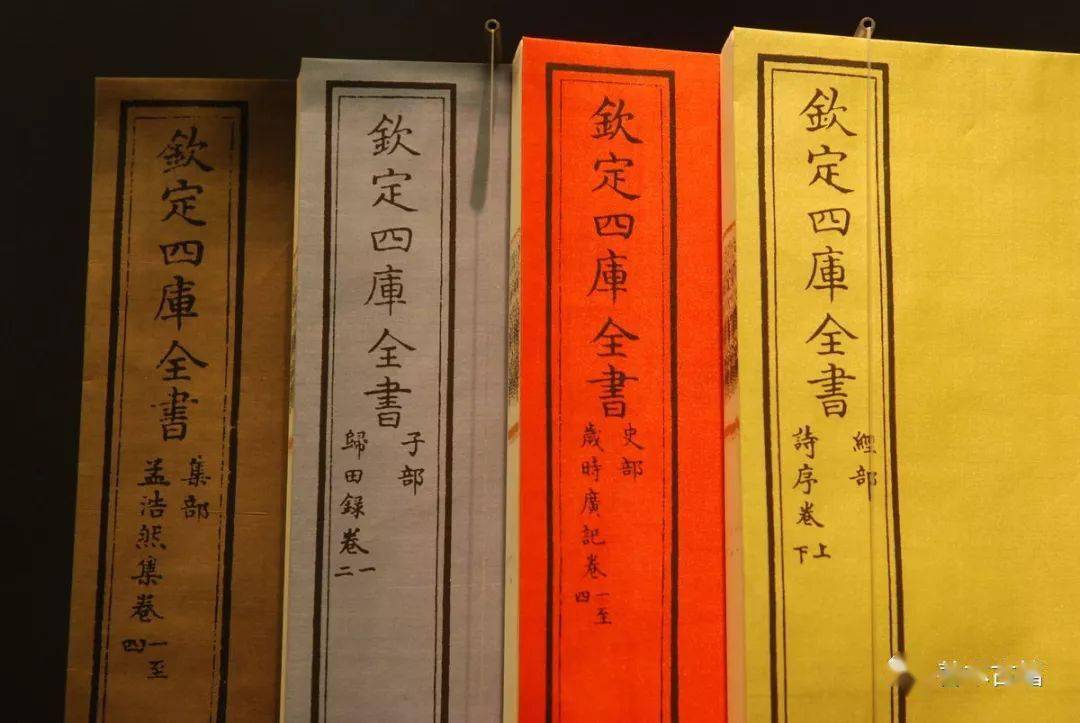 欽定四庫全書
經部
詩序卷上下
欽定四庫全書
史部
歲時廣記卷一至四
欽定四庫全書
子部
歸田錄卷一二
欽定四庫全書
集部
孟浩然集卷一至四